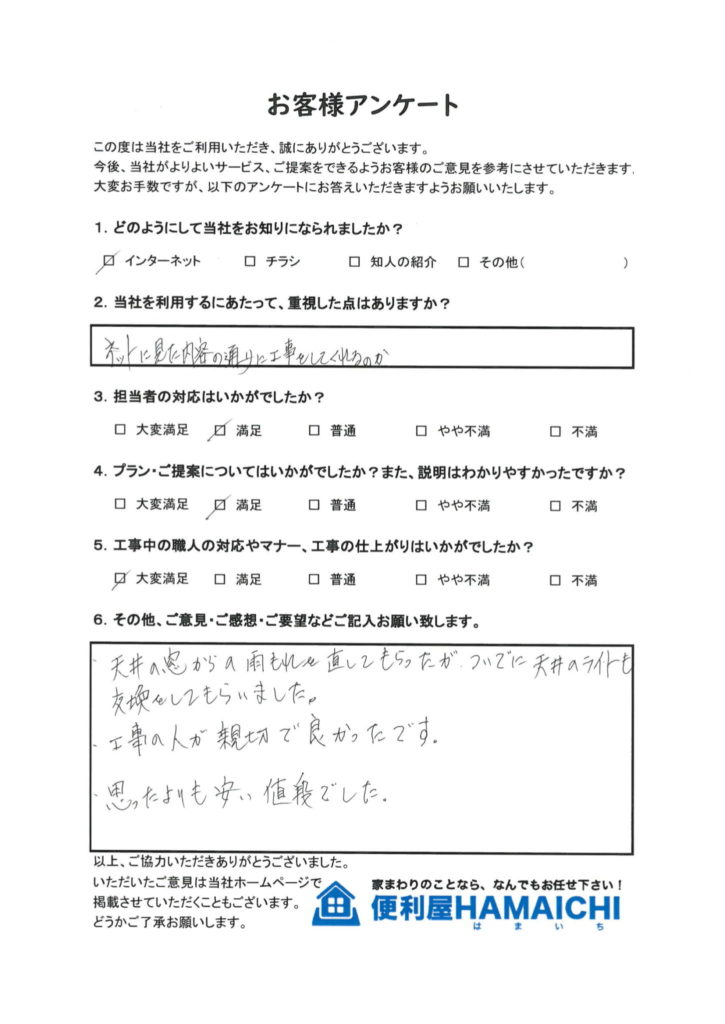 お客様アンケート
この度は当社をご利用いただき、誠にありがとうございます。
今後、当社がよりよいサービス、ご提案をできるようお客様のご意見を参考にさせていただきます.
大変お手数ですが、以下のアンケートにお答えいただきますようお願いいたします。
1. どのようにして当社をお知りになられましたか？
☑ インターネット □ チラシ □ 知人の紹介 □ その他( )
2. 当社を利用するにあたって、重視した点はありますか？
ネットに見た内容の通りに工事をしてくれるのか
3. 担当者の対応はいかがでしたか？
□ 大変満足 ☑ 満足 □ 普通 □ やや不満 □ 不満
4. プラン・ご提案についてはいかがでしたか？また、説明はわかりやすかったですか？
□ 大変満足 ☑ 満足 □ 普通 □ やや不満 □ 不満
5. 工事中の職人の対応やマナー、工事の仕上がりはいかがでしたか？
☑ 大変満足 □ 満足 □ 普通 □ やや不満 □ 不満
6. その他、ご意見・ご感想・ご要望などご記入お願い致します。
・天井の窓からの雨もれを直してもらったが、ついでに天井のライトも
交換をしてもらいました。
・工事の人が親切で良かったです。
・思ったよりも安い値段でした.
以上、ご協力いただきありがとうございました。
いただいたご意見は当社ホームページで
掲載させていただくこともございます。
どうかご了承お願いします。
家まわりのことなら、なんでもお任せ下さい！
便利屋HAMAICHI
はまいち